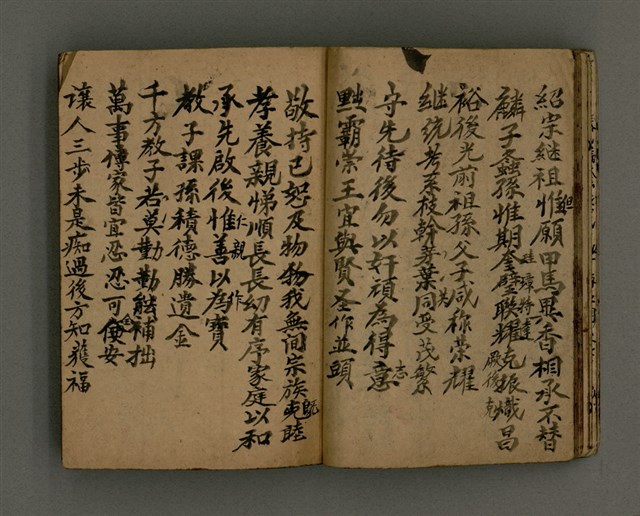 紹宗継祖惟願甲馬思香相承不替
麟子螽孫惟期奎璧聯耀克振熾昌
裕後光前祖孫父子咸称榮耀
継統考系枝幹芽葉同受茂繁
守先待後勿以奸頑為得意
黜霸崇王宜與賢圣作並頭
敬持己恕及物物我無间宗族克睦
孝養親悌順長長幼有序家庭以和
承先啟後惟善以為寶
教子課孫積德勝遺金
千方教子若莫勤勤能補拙
萬事傳家皆宜忍忍可使安
讓人三步未是痴過後方知獲福